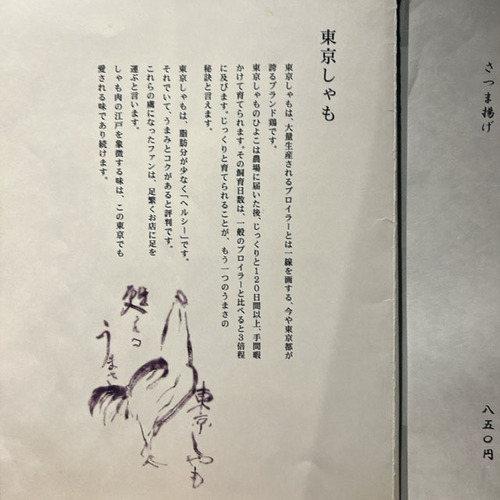 さつま揚げ
八五〇円
東京しゃも
東京しゃもは、大量生産されるブロイラーとは一線を画する、今や東京都が
誇るブランド鶏です。
東京しゃものひよこは農場に届いた後、じっくりと120日間以上、手間暇
かけて育てられます。その飼育日数は、一般のブロイラーと比べると3倍程
に及びます。じっくりと育てられることが、もう一つのうまさの
秘訣と言えます。
東京しゃもは、脂肪分が少なく「ヘルシー」です。
それでいて、うまみとコクがあると評判です。
これらの虜になったファンは、足繁くお店に足を
運ぶと言います。
しゃも肉の江戸を象徴する味は、この東京でも
愛される味であり続けます。
うまさ
東京しゃも